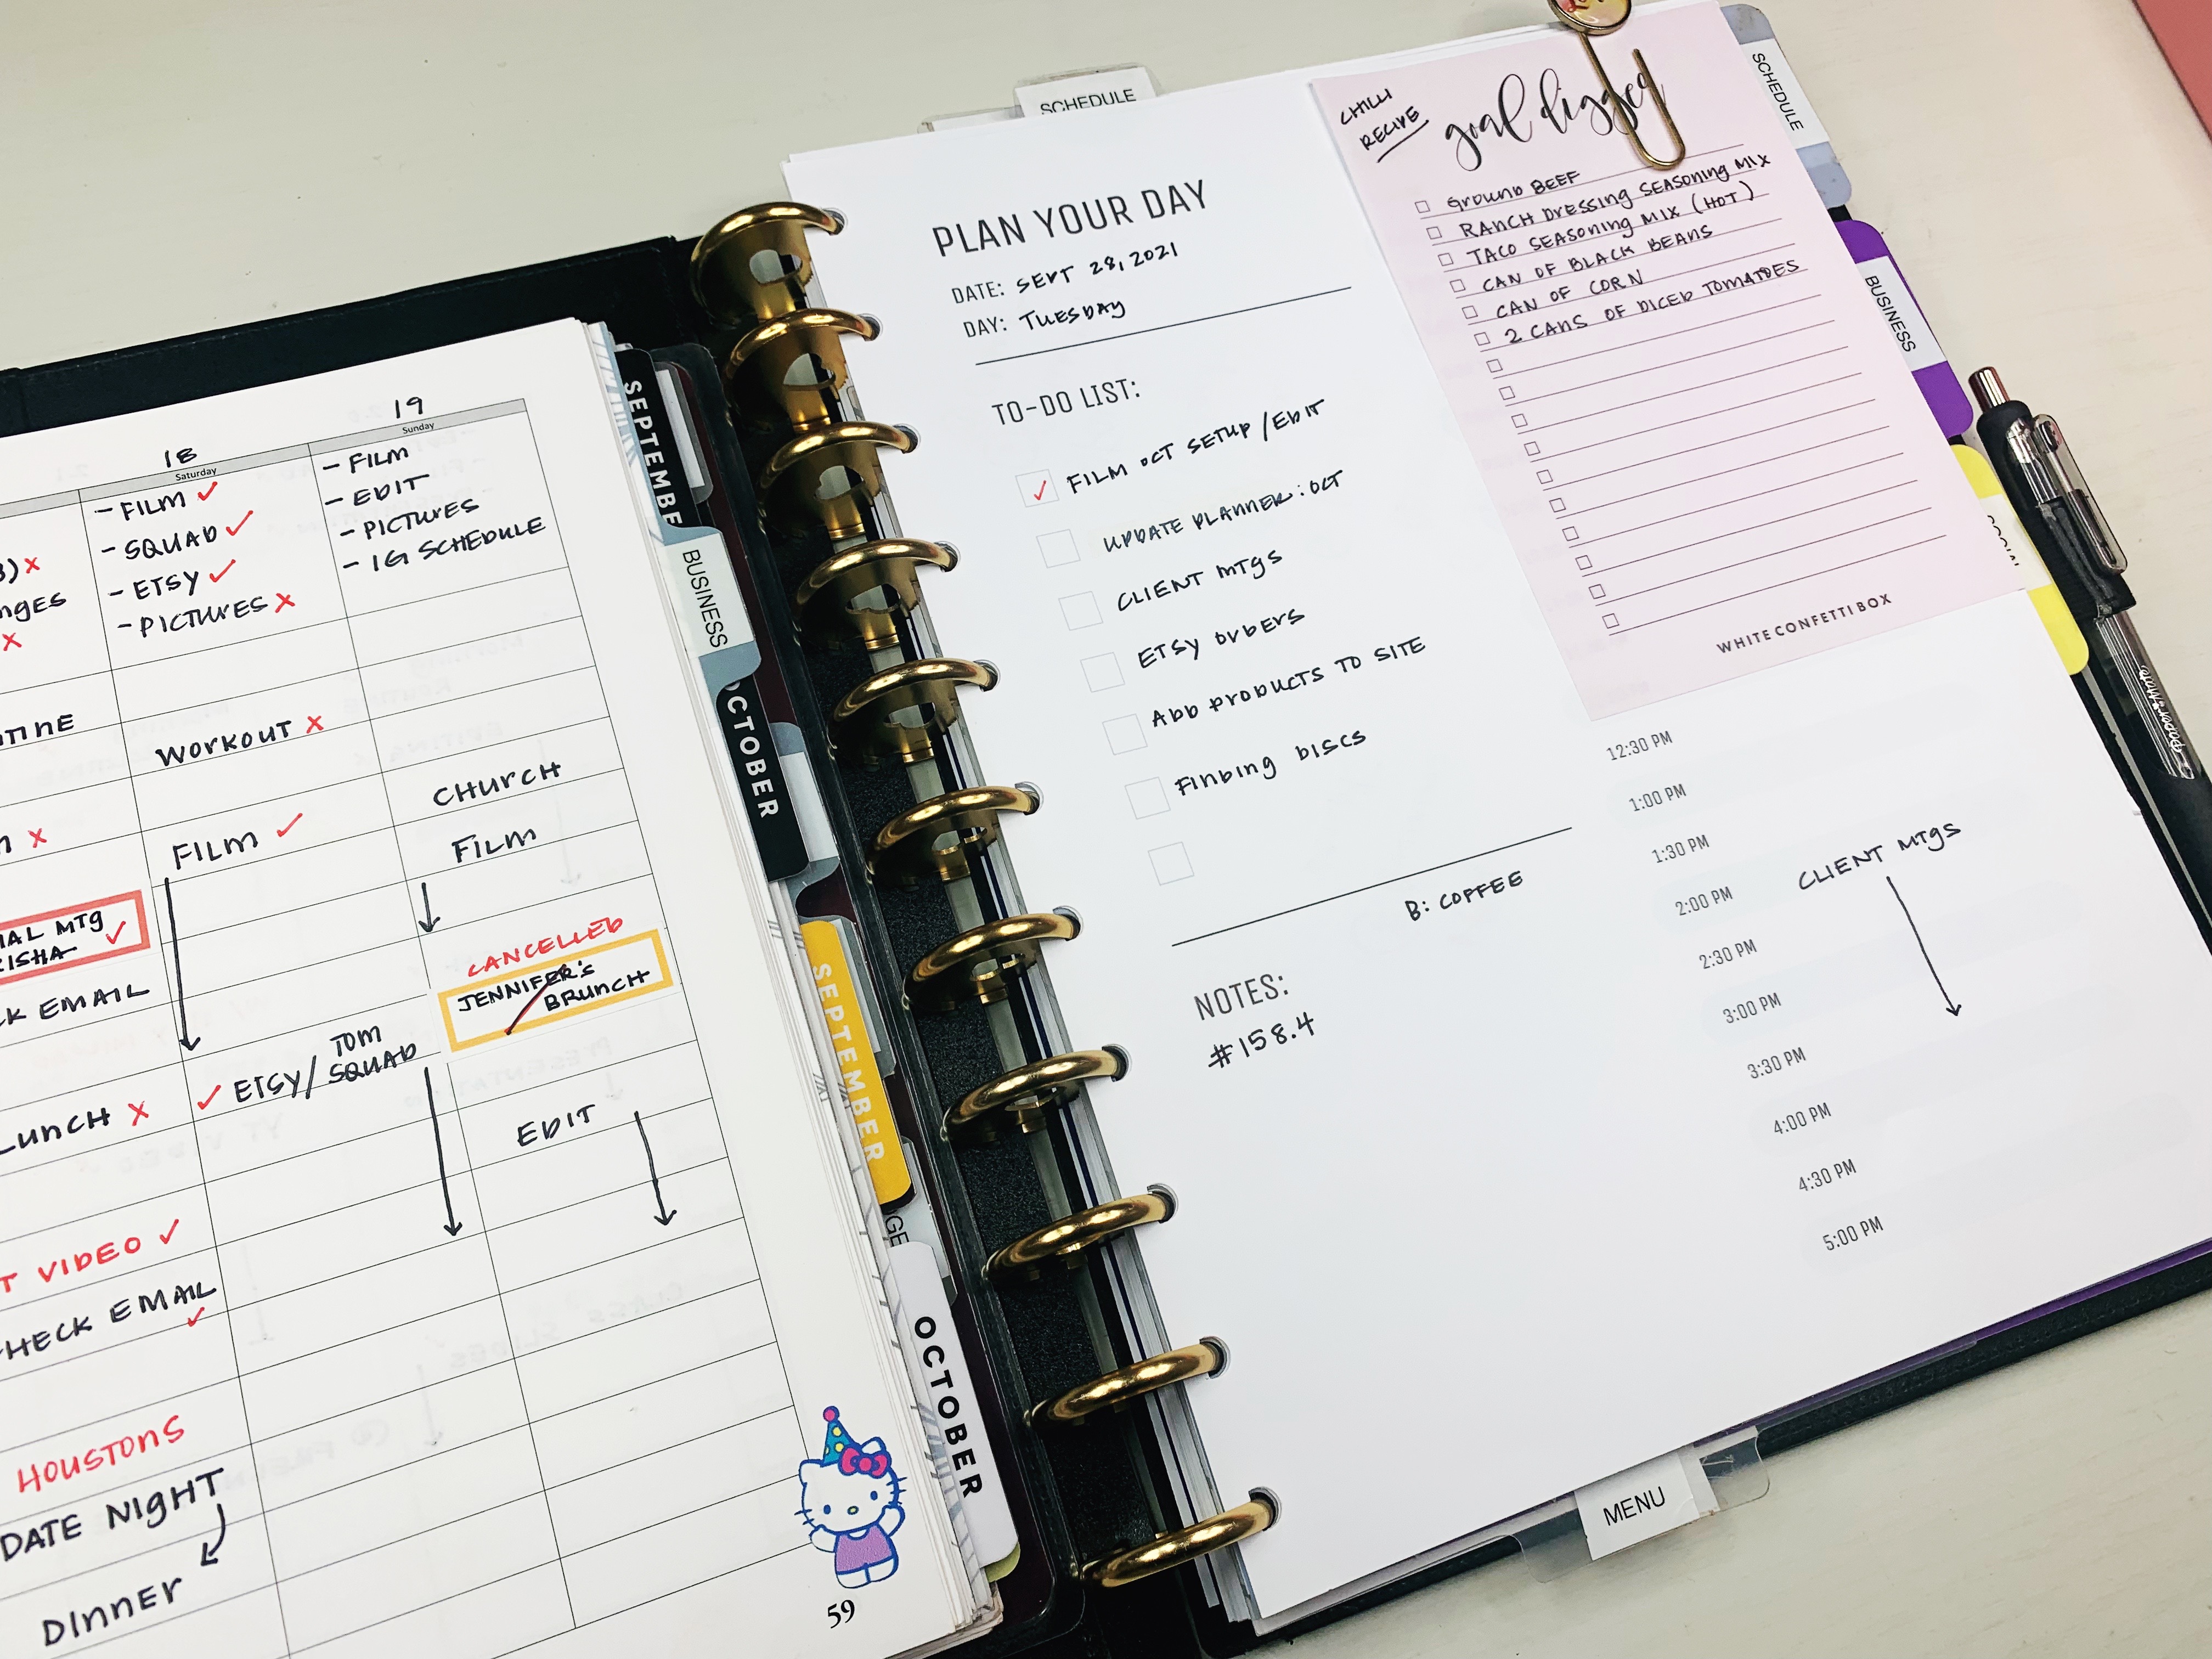 18
Saturday
- FILM ✓
- SQUAD ✓
- ETSY ✓
- PICTURES X
WORKOUT X
FILM ✓
✓ ETSY/ TOM
SQUAD
19
Sunday
- FILM
- EDIT
- PICTURES
- IG SCHEDULE
CHURCH
FILM
CANCELLED
JENNIFER'S
BRUNCH
EDIT
MTG
CK EMAIL
LUNCH X
VIDEO ✓
HECK EMAIL ✓
HOUSTONS
DATE NIGHT
DINNER
59
SEPTEMBE
BUSINESS
OCTOBER
SEPTEMBER
OCTOBER
SCHEDULE
PLAN YOUR DAY
DATE: SEPT 28, 2021
DAY: TUESDAY
TO-DO LIST:
✓ FILM OCT SETUP / EDIT
UPDATE PLANNER: OCT
CLIENT MTGS
ETSY ORDERS
ADD PRODUCTS TO SITE
FINDING DISCS
B: COFFEE
NOTES:
#158.4
CHILLI
RECIPE
goal digger
GROUND BEEF
RANCH DRESSING SEASONING MIX
TACO SEASONING MIX (HOT)
CAN OF BLACK BEANS
CAN OF CORN
2 CANS OF DICED TOMATOES
WHITE CONFETTI BOX
12:30 PM
1:00 PM
1:30 PM
2:00 PM
2:30 PM
3:00 PM
3:30 PM
4:00 PM
4:30 PM
5:00 PM
CLIENT MTGS
SCHEDULE
BUSINESS
MENU
Paper Mate